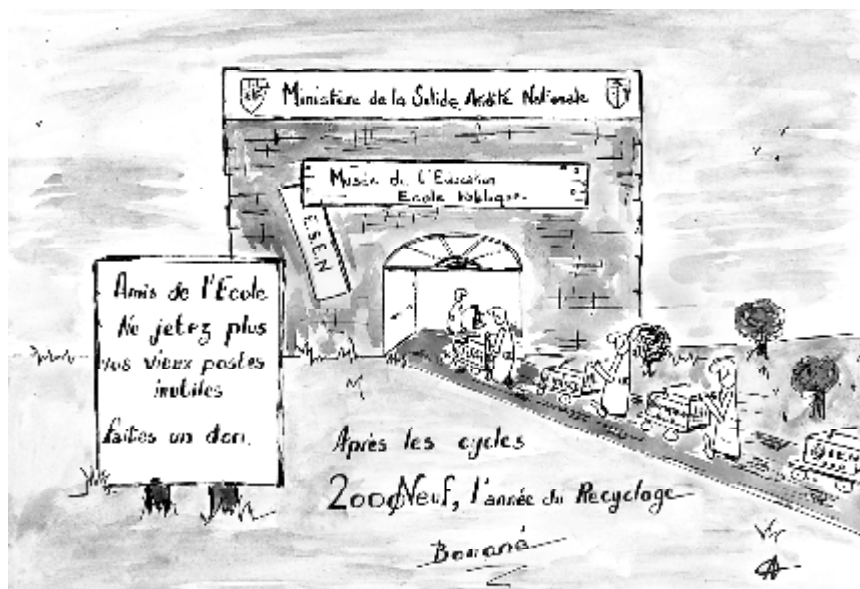 Ministère de la Solide Aridité Nationale
Musée de l'Education
Ecole Publique.
E.S.E.N
Amis de l'Ecole
Ne jetez plus
vos vieux postes
inutiles
faites un don.
Après les cycles
2000Neuf, l'année du Recyclage
Bonané